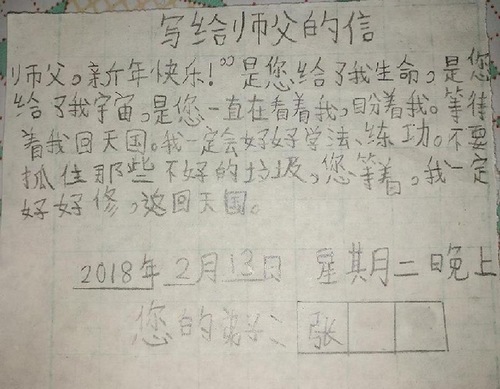 写给师父的信
师父，亲介年快乐！”是您给了我生命，是您
给了我宇宙，是您一直在看着我，盼着我。等待
着我回天国。我一定会好好学法、练功。不要
抓住那些不好的垃圾，您等着，我一定
好好修，回天国。
2018年2月13日 星其月二晚上
您的 张